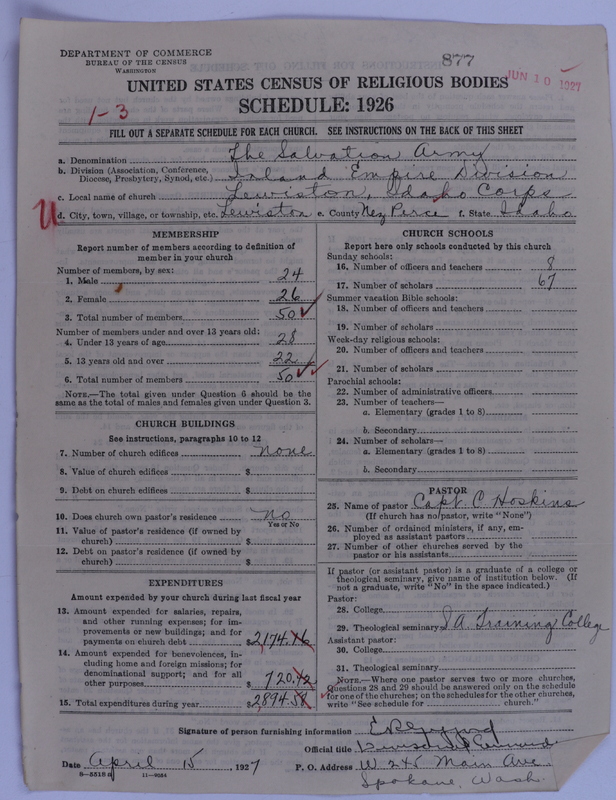 DEPARTMENT OF COMMERCE
BUREAU OF THE CENSUS
WASHINGTON
877
JUN 10 1927
UNITED STATES CENSUS OF RELIGIOUS BODIES
SCHEDULE: 1926
1-3
FILL OUT A SEPARATE SCHEDULE FOR EACH CHURCH. SEE INSTRUCTIONS ON THE BACK OF THIS SHEET
a. Denomination The Salvation Army
b. Division (Association, Conference, Diocese, Presbytery, Synod, etc.) Inland Empire Division
c. Local name of church Lewiston, Idaho Corps
U
d. City, town, village, or township, etc. Lewiston e. County Nez Perce f. State Idaho
MEMBERSHIP
Report number of members according to definition of
member in your church
Number of members, by sex:
1. Male 24
2. Female 26
3. Total number of members 50
Number of members under and over 13 years old:
4. Under 13 years of age 28
5. 13 years old and over 22
6. Total number of members 50
NOTE.—The total given under Question 6 should be the
same as the total of males and females given under Question 3.
CHURCH BUILDINGS
See instructions, paragraphs 10 to 12
7. Number of church edifices none
8. Value of church edifices $
9. Debt on church edifices $
10. Does church own pastor's residence no
Yes or No
11. Value of pastor's residence (if owned by
church) $
12. Debt on pastor's residence (if owned by
church) $
EXPENDITURES
Amount expended by your church during last fiscal year
13. Amount expended for salaries, repairs,
and other running expenses; for im-
provements or new buildings; and for
payments on church debt $2,174.16
14. Amount expended for benevolences, in-
cluding home and foreign missions; for
denominational support; and for all
other purposes $ 720.42
15. Total expenditures during year $2,894.58
CHURCH SCHOOLS
Report here only schools conducted by this church
Sunday schools:
16. Number of officers and teachers 8
17. Number of scholars 67
Summer vacation Bible schools:
18. Number of officers and teachers
19. Number of scholars
Week-day religious schools:
20. Number of officers and teachers
21. Number of scholars
Parochial schools:
22. Number of administrative officers
23. Number of teachers—
a. Elementary (grades 1 to 8)
b. Secondary
24. Number of scholars—
a. Elementary (grades 1 to 8)
b. Secondary
PASTOR
25. Name of pastor Capt. C Hoskins
(If church has no pastor, write "None")
26. Number of ordained ministers, if any, em-
ployed as assistant pastors
27. Number of other churches served by the
pastor or his assistants
If pastor (or assistant pastor) is a graduate of a college or
theological seminary, give name of institution below. (If
not a graduate, write "No" in the space indicated.)
Pastor:
28. College
29. Theological seminary S A Training College
Assistant pastor:
30. College
31. Theological seminary
NOTE.—Where one pastor serves two or more churches,
Questions 28 and 29 should be answered only on the schedule
for one of the churches; on the schedules for the other churches,
write "See schedule for church."
Signature of person furnishing information
Official title
Date April 15, 1927 P. O. Address W 245 Main Ave
8-5518 a 11-9034
Spokane, Wash.